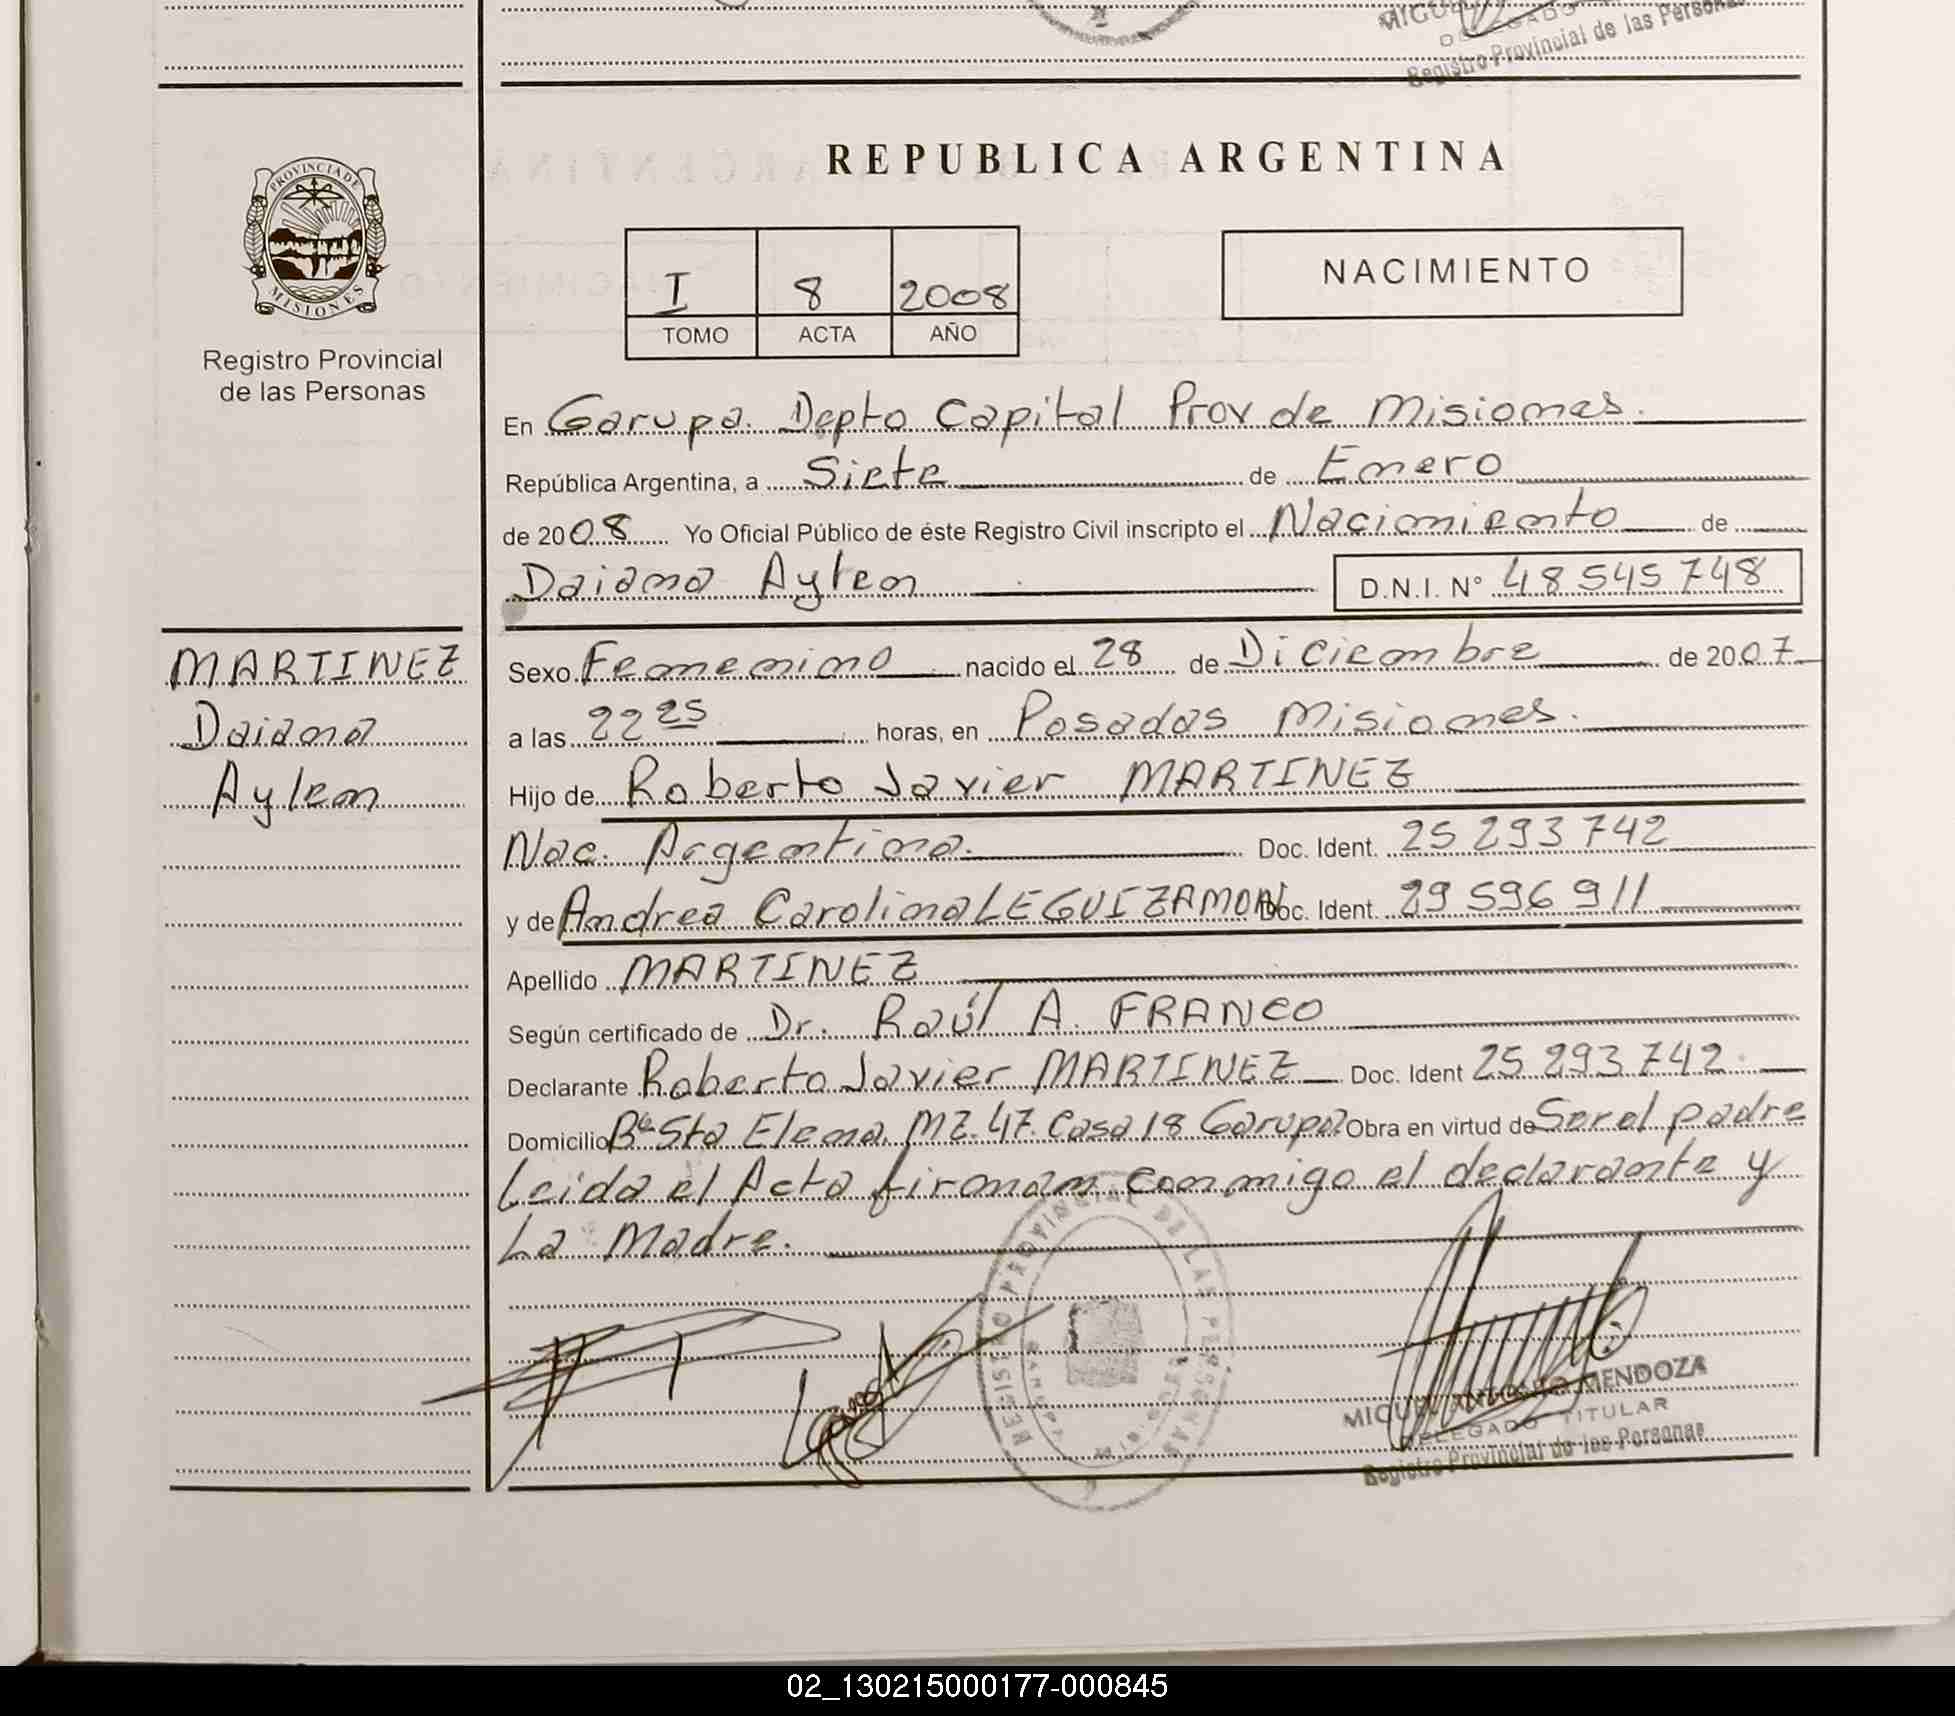 MIGUEL
Registro Provincial de las Personas
REPUBLICA ARGENTINA
PROVINCIA DE
MISIONES
Registro Provincial
de las Personas
I 8 2008
TOMO ACTA AÑO
NACIMIENTO
En Garupa. Depto Capital Prov de Misiones.
República Argentina, a Siete de Enero
de 2008 Yo Oficial Público de éste Registro Civil inscripto el Nacimiento de
Daiana Aylen D.N.I. N° 48 545 748
MARTINEZ
Daiana
Aylen
Sexo Femenino nacido el 28 de Diciembre de 2007
a las 22 25 horas, en Posadas Misiones.
Hijo de Roberto Javier MARTINEZ
Nac. Argentina. Doc. Ident. 25 293 742
y de Andrea Carolina LEGUIZAMON Doc. Ident. 29 596 911
Apellido MARTINEZ
Según certificado de Dr. Raúl A. FRANCO
Declarante Roberto Javier MARTINEZ Doc. Ident 25 293 742.
Domicilio Bº Sta Elena. MZ. 47. Casa 18 Garupa. Obra en virtud de Ser el padre
Leida el Acta firman conmigo el declarante y
La Madre.
REGISTRO PROVINCIAL DE LAS PERSONAS
MIGUEL ANTONIO MENDOZA
DELEGADO TITULAR
Registro Provincial de las Personas
02_130215000177-000845